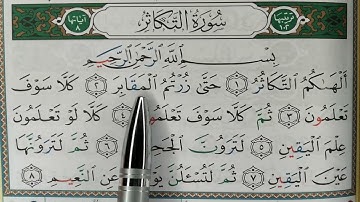 ترتيبها ١٠٢ سُورَةُ التَّكَاثُرِ آياتها ٨
بِسْمِ اللَّهِ الرَّحْمَٰنِ الرَّحِيمِ
أَلْهَىٰكُمُ التَّكَاثُرُ ١ حَتَّىٰ زُرْتُمُ الْمَقَابِرَ ٢ كَلَّا سَوْفَ
تَعْلَمُونَ ٣ ثُمَّ كَلَّا سَوْفَ تَعْلَمُونَ ٤ كَلَّا لَوْ تَعْلَمُونَ
عِلْمَ الْيَقِينِ ٥ لَتَرَوُنَّ ٦ ثُمَّ لَتَرَوُنَّهَا
عَيْنَ الْيَقِينِ ٧ ثُمَّ لَتُسْـَٔلُنَّ عَنِ النَّعِيمِ ٨